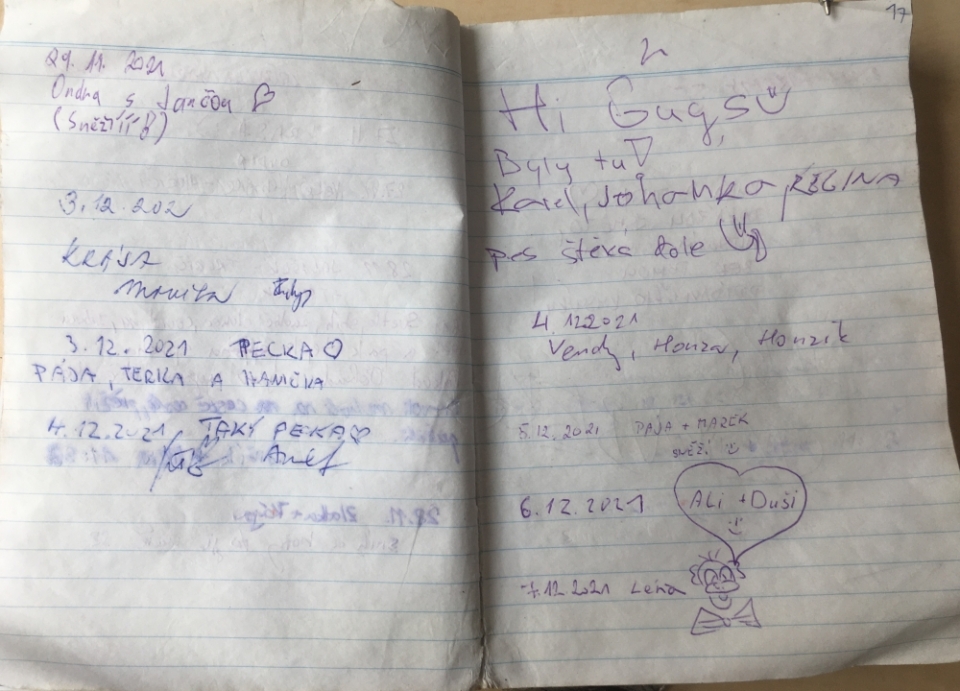 29.11. 2021
Ondra s Jančou
(Sněžííí)
3.12.202
KRÁSA
3.12.2021 PECKA
PÁJA, TERKA A HANIČKA
4.12.2021 TAKY PECKA
17
Hi Guys
Byly tu
Karel, Johanka, REGINA
pes štěká dole
4.122021
Vendy, Honza, Honzík
5.12.2021 PÁJA + MAREK
sněží
6.12.2021 Ali + Duši
7.12.2021 Léňa